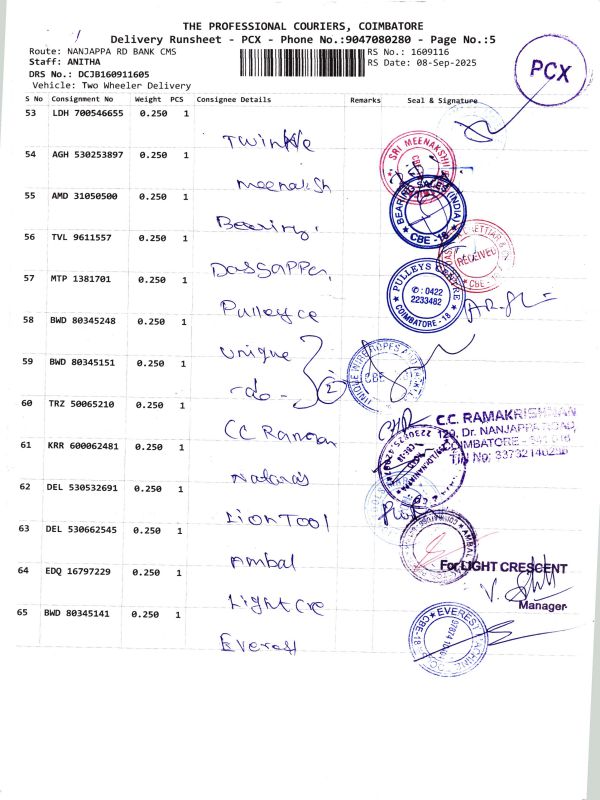 THE PROFESSIONAL COURIERS, COIMBATORE
Delivery Runsheet - PCX - Phone No.:9047080280 - Page No.:5
Route: NANJAPPA RD BANK CMS
RS No.: 1609116
Staff: ANITHA
RS Date: 08-Sep-2025
DRS No.: DCJB160911605
Vehicle: Two Wheeler Delivery
PCX
S No Consignment No Weight PCS Consignee Details Remarks Seal & Signature
53 LDH 700546655 0.250 1
Twinkle
54 AGH 530253897 0.250 1
Meenaksh
SRI MEENAKSHI
55 AMD 31050500 0.250 1
Bearing.
BEARING SALES (INDIA)
CBE - 18
56 TVL 9611557 0.250 1
Dassappa
RECEIVED
57 MTP 1381701 0.250 1
Pulley ce
PULLEYS CENTRE
✆ : 0422
2233482
COIMBATORE - 18
58 BWD 80345248 0.250 1
Unique
59 BWD 80345151 0.250 1
-do-
2
UNIQUE WIRE ROPES AND
CBE
60 TRZ 50065210 0.250 1
CC Raman
C.C. RAMAKRISHNAN
129, Dr. NANJAPPA ROAD,
COIMBATORE - 641 018
TIN No: 33732146256
61 KRR 600062481 0.250 1
Nataraj
62 DEL 530532691 0.250 1
Lion Tool
63 DEL 530662545 0.250 1
Ambal
AMBAL
64 EDQ 16797229 0.250 1
Light Cre
For LIGHT CRESCENT
Manager
65 BWD 80345141 0.250 1
Everest
EVEREST
CBE-18